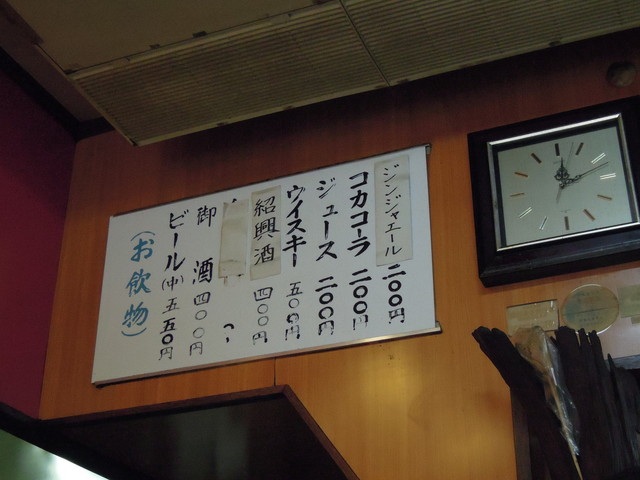 ジンジャエール 二〇〇円
コカコーラ 二〇〇円
ジュース 二〇〇円
ウイスキー 五〇〇円
紹興酒 四〇〇円
御酒 四〇〇円
ビール(中) 五五〇円
(お飲物)